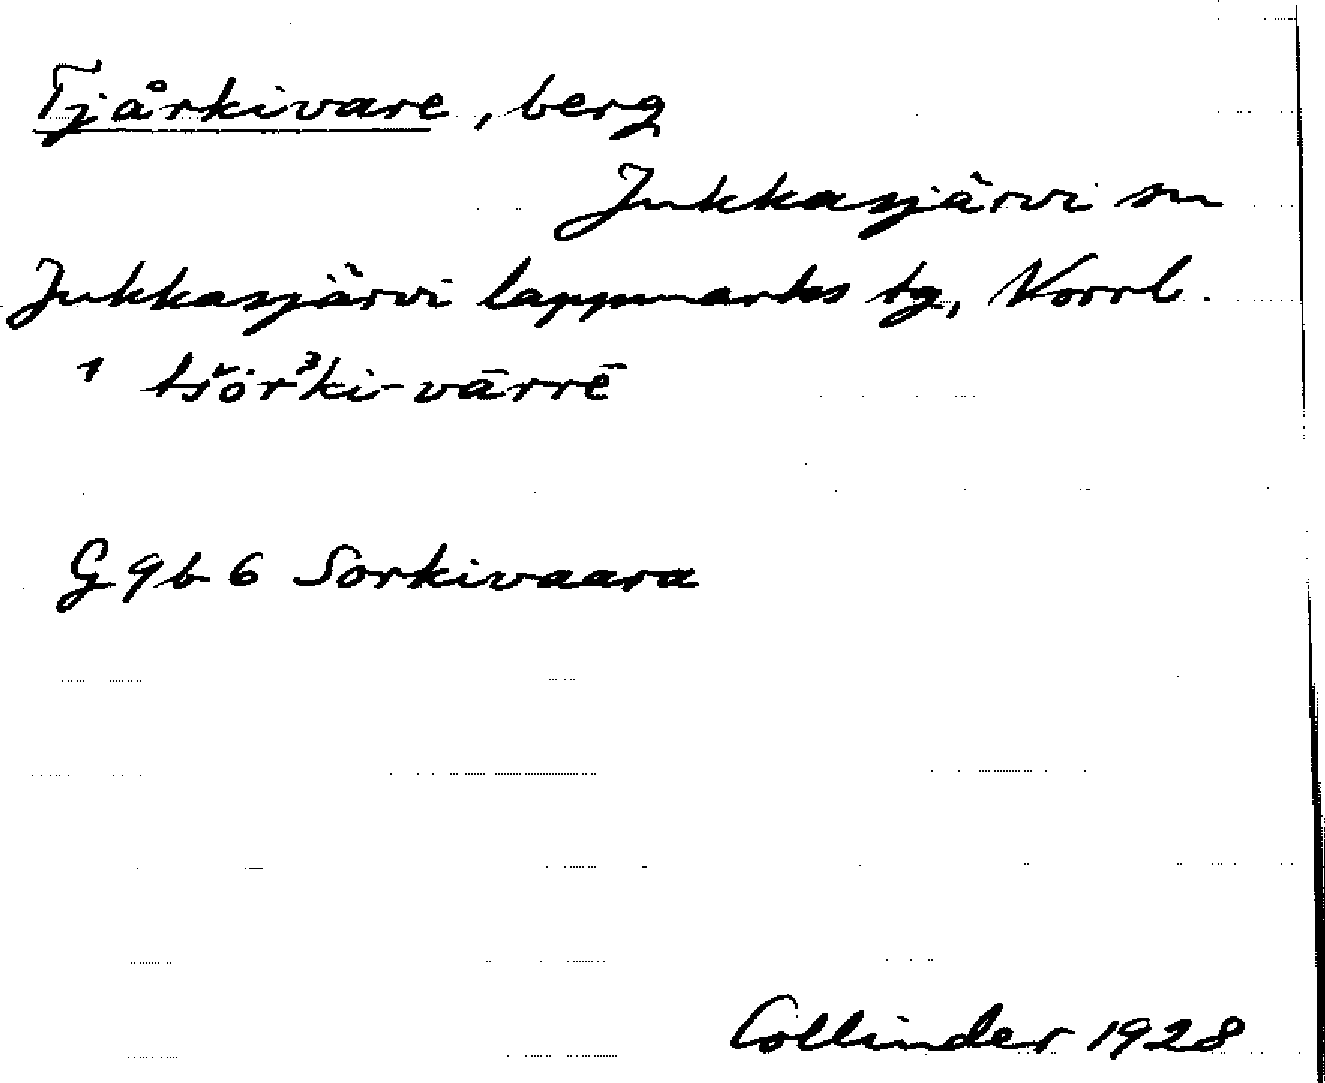 Tjårkivare, berg
Jukkasjärvi sn
Jukkasjärvi lappmarks tg, Norrb.
1 tšör³ki-vārrē
G 9b 6 Sorkivaara
Collinder 1928